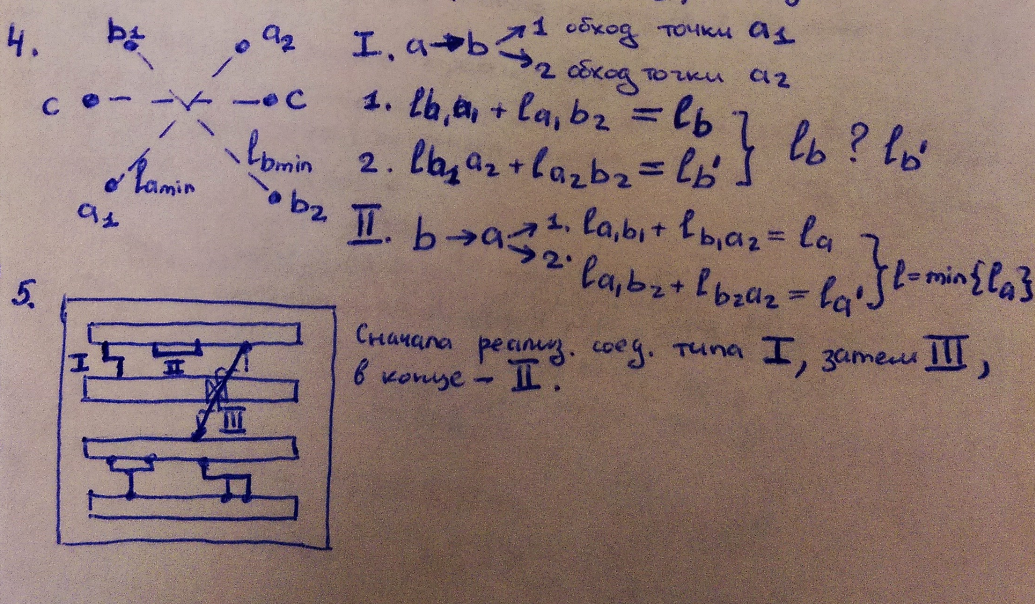 4.
b1
a2
c
c
lamin
lbmin
a1
b2
I. a→b
1 обход точки a1
2 обход точки a2
1. lb1a1 + la1b2 = lb
2. lb1a2 + la2b2 = lb'
lb ? lb'
II. b→a
1. la1b1 + lb1a2 = la
2. la1b2 + lb2a2 = la'
l=min{la}
5.
I
II
III
Сначала реализ. соед. типа I, затем III,
в конце – II.